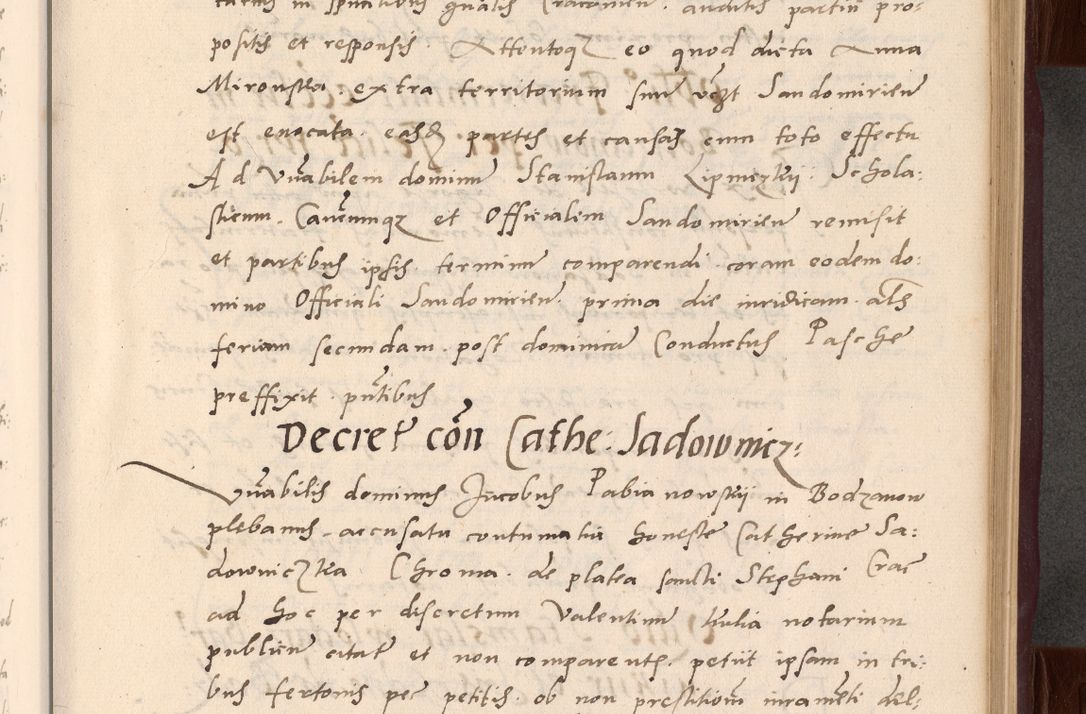 positis et responsis. Attentoqz eo quod dicta Anna
Mironska extra territorium suu vezt Sandomirien
est evocata. easq partes et causas cum toto effectu
Ad Vnabilem dominu Stanislaum Lipniczkij. Schola-
sticum. Cauenumqz et Officialem Sandomirien remisit
et partibus ipsis terminu comparendi coram eodem do:
mino Officiali Sandomirien prima die iuridicam als
feriam secundam post dominica Conductus Pasche
preffixit pntibus
Decret con Cathe: Sadownicz:
Vnabilis dominus Jacobus Pabianowskij in Bodzanow
plebanus accusatu contumatia honeste Catherine Sa:
downiczka Chroma de platea sancti Stephani Crac
ad hoc per discretum Valentinu Iulia notarium
publicu citate et non comparents. petiit ipsam in tri:
bus fertonis pec petitis ob non prestitiom iuramenti del-